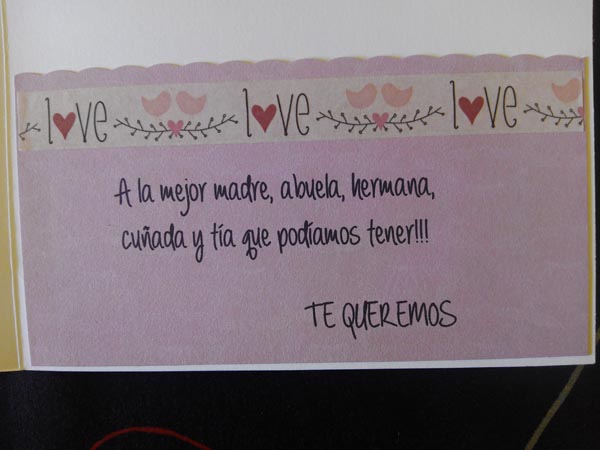 love love love
A la mejor madre, abuela, hermana,
cuñada y tía que podíamos tener!!!
TE QUEREMOS